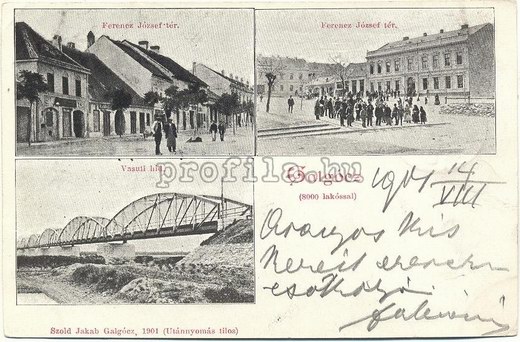 Ferencz József-tér.
Ferencz József tér.
Vasuti híd.
profila.hu
Galgócz
(8000 lakóssal)
1901 14/VIII
Aranyos Kis
csókolja
Szold Jakab Galgócz, 1901 (Utánnyomás tilos)